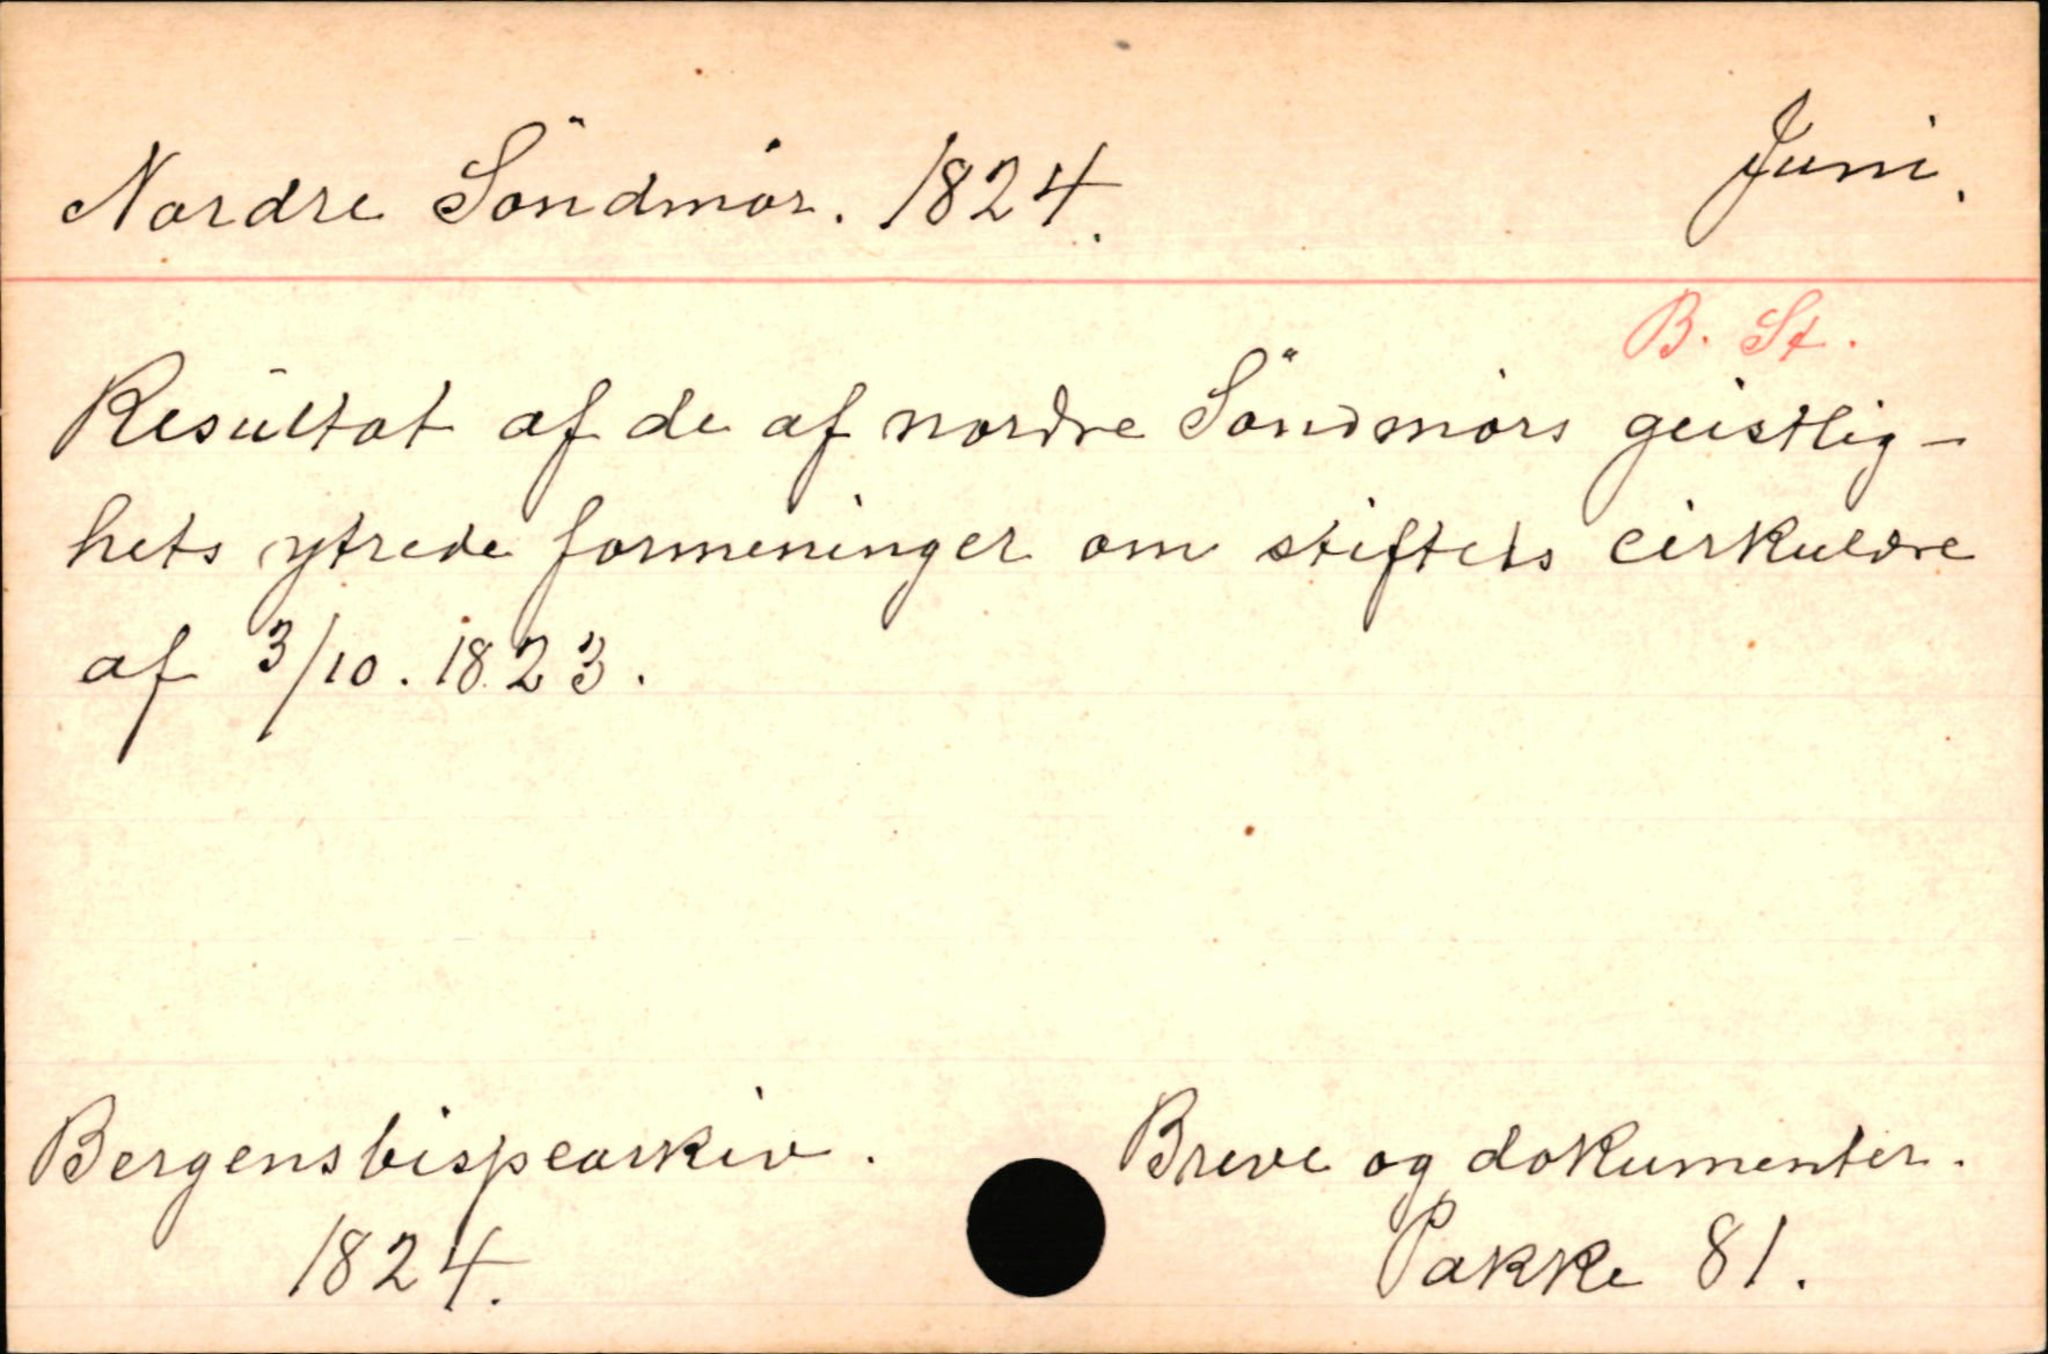 Nordre Söndmör. 1824. Juni.
B. St.
Resultat af de af nordre Söndmörs geistlig-
hets ytrede formeninger om stiftets cirkulære
af 3/10. 1823.
Bergens bispearkiv. Breve og dokumenter.
1824. Pakke 81.